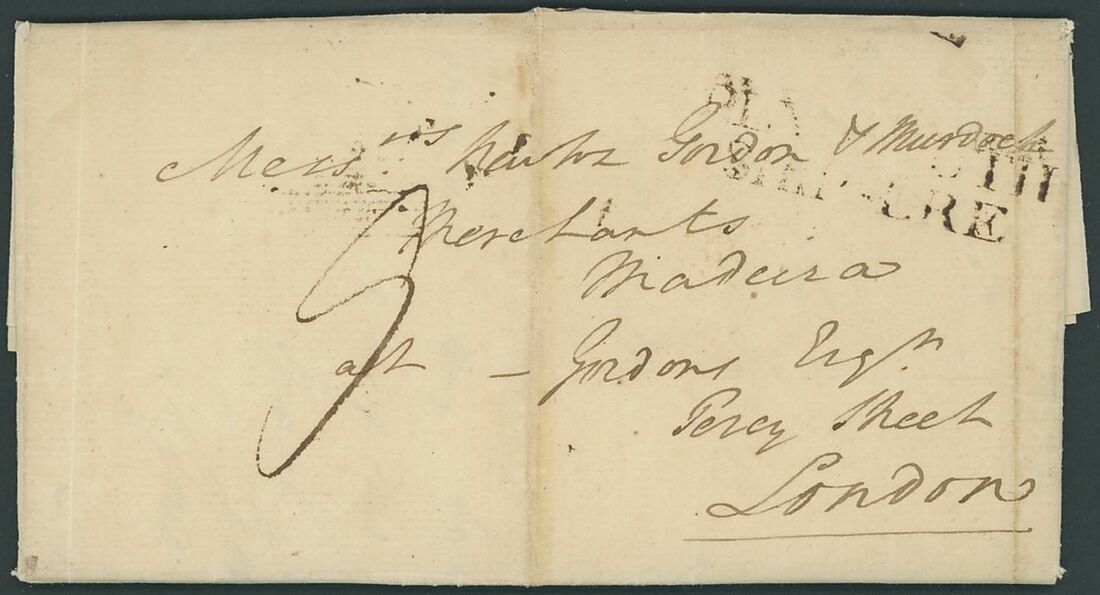 Mess.rs Newton Gordon & Murdoch
Merchants
Madeira
at — Gordons Esqr.
Percy Street
London
PLY TH
SHIP LRE